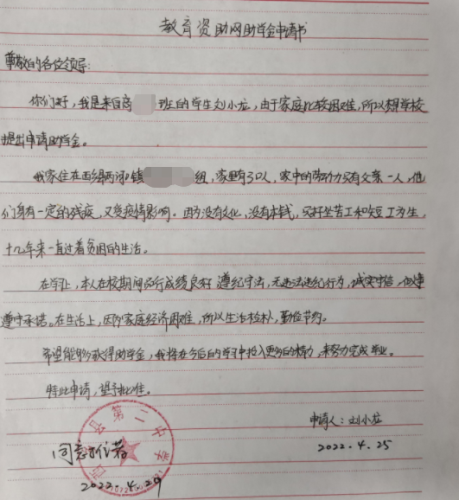 教育资助网助学金申请书
尊敬的各位领导:
你们好,我是来自高 班的学生刘小龙,由于家庭比较困难,所以想学校
提出申请助学金。
我家住在西乡县两河口镇 组,家里有3口人,家中的劳动力只有父亲一人,他
们身有一定的残疾,又受疫情影响。因为没有文化,没有本钱,只好坐苦工和短工为生,
十几年来一直过着贫困的生活。
在学上,本人在校期间品行成绩良好 遵纪守法,无违法违纪行为,诚实守信,
遵守承诺。在生活上,因为家庭经济困难,所以生活检朴,勤俭节约。
希望能够获得助学金,我将在今后的学习中投入更多的精力,来努力完成毕业。
特此申请,望予批准。
县第二中学
申请人:刘小龙
同意
2022.4.25
2022.4.29